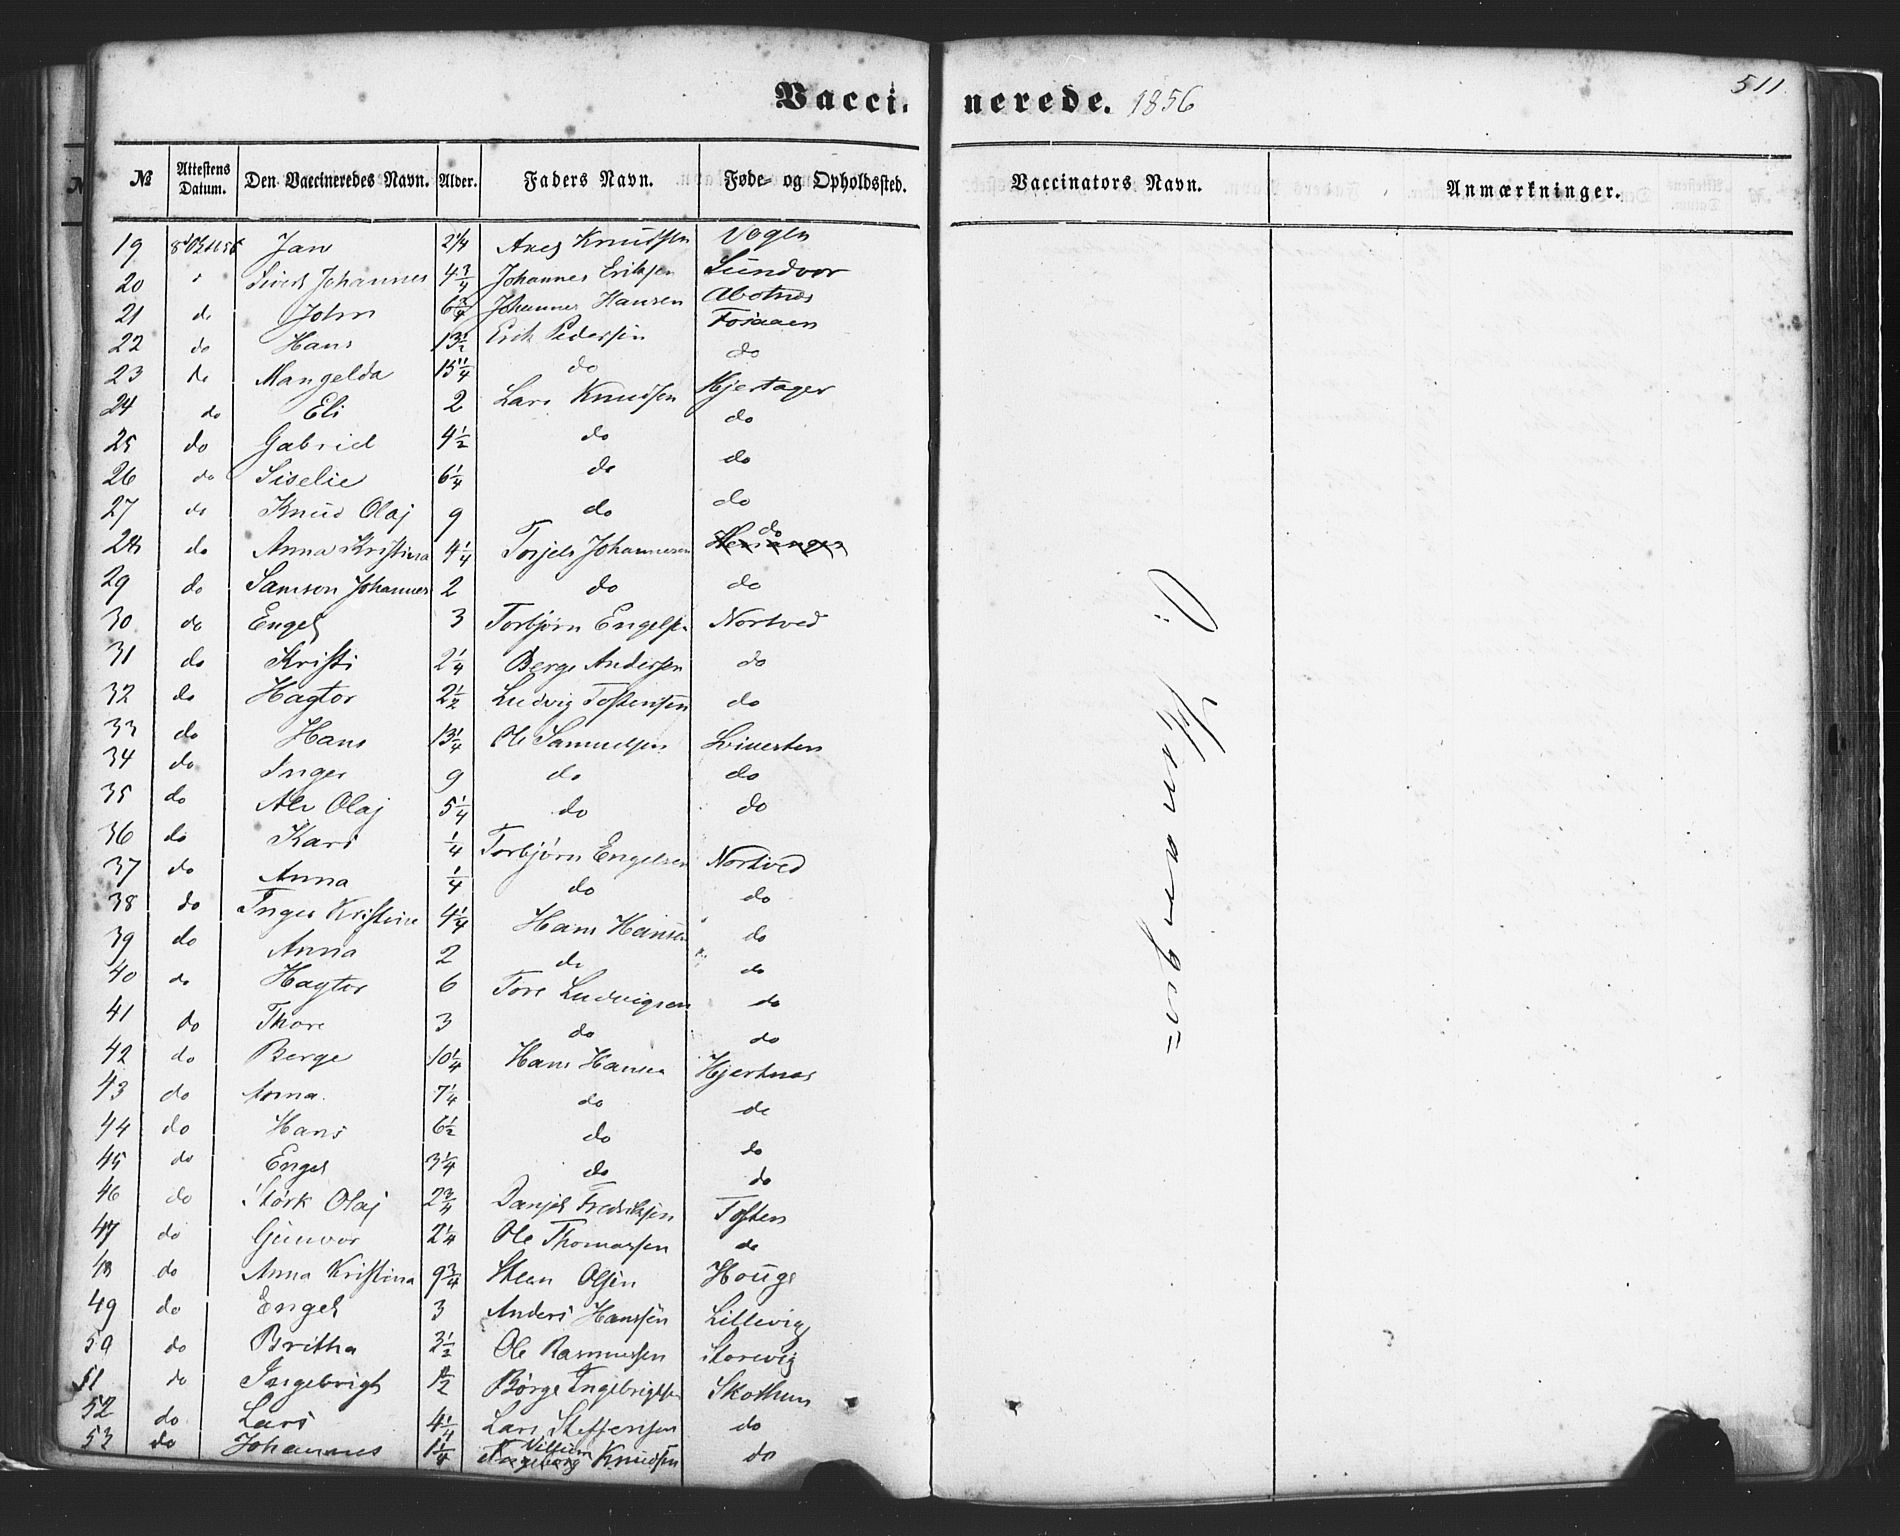 Vaccinerede. 1856
511
№ Attestens Datum. Den Vaccineredes Navn. Alder. Faders Navn. Føde- og Opholdssted. Vaccinators Navn. Anmærkninger.
19 Jan 2 1/4 Knudsen Vogen
20 Sivert Johannes 4 3/4 Johannes Eriksen Sundvor
21 do John 6 3/4 Johannes Hansen
22 do Hans 13 1/2 Erik Pedersen
23 do Mangelda do do
24 do Eli 2 Lars Knudsen Hjertager
25 do Gabriel 4 1/2 do do
26 do Siselie 6 1/4 do do
27 do Knud Olaj 9 do do
28 do Anna Kristina 4 1/4 Torjels Johannesen do
29 do Samson Johannes 2 do do
30 do Engel 3 Torbjørn Engelsen Nortved
31 do Kristi 2 1/4 Berge Andersen do
32 do Hagtor 2 1/2 Ludvig Tostensen do
33 do Hans 13 1/4 Ole Samuelsen
34 do Inger 9 do do
35 do Olaj 5 1/4 do do
36 do Kari 1/4 Torbjørn Engelsen Nortved
37 do Anna 1/4 do do
38 do Inger Kristine 4 1/4 Hans Hansen do
39 do Anna 2 do do
40 do Hagtor 6 Tore Ludvigsen do
41 do Thore 3 do do
42 do Berge 10 1/4 Hans Hansen Hjertnes
43 do Anna. 7 1/4 do do
44 do Hans 6 1/2 do do
45 do Engel 3 1/4 do do
46 do Størk Olaj 2 3/4 Danjel Fredriksen Tosten
47 do Gunvor 2 1/4 Ole Thomassen do
48 do Anna Kristina 9 3/4 Steen Olsen Houge
49 do Engel 3 Anders Hanssen Lillevig
50 do Britha 3 1/2 Ole Rasmussen Storevig
51 do Ingebrigt 1/2 Børge Ingebrigtsen Skothun
52 do Lars 4 1/4 Lars Steffensen do
53 do Johannes 1 1/4 Villum Knudsen do